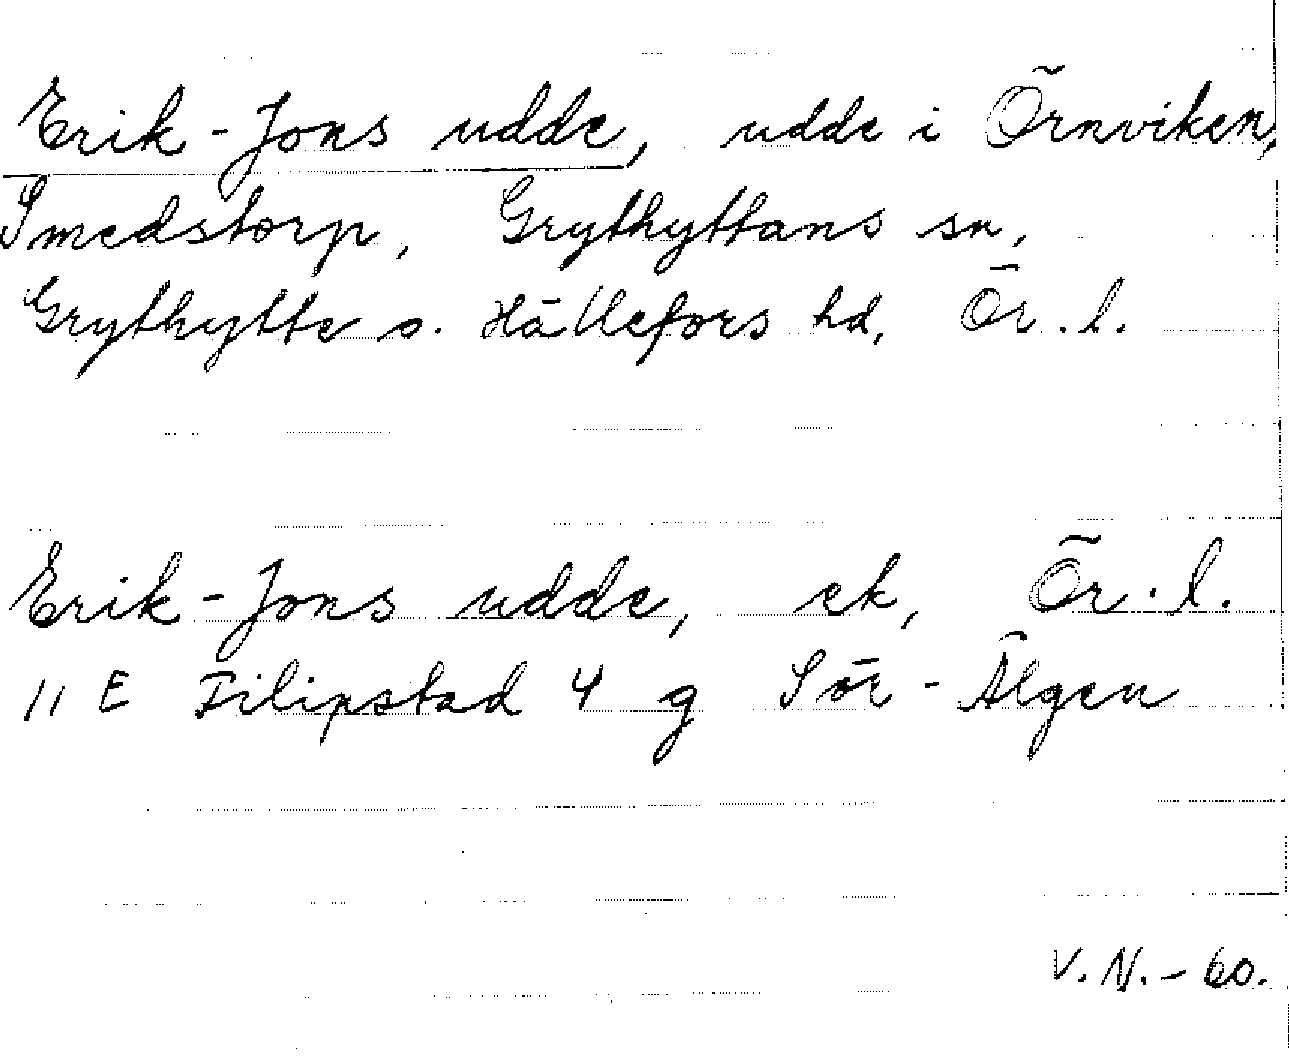 Erik-Jons udde, udde i Örnviken,
Smedstorp, Grythyttans sn,
Grythytte o. Hällefors hd, Ör.l.
Erik-Jons udde, ek, Ör.l.
11 E Filipstad 4 g Sör-Älgen
V.N.-60.